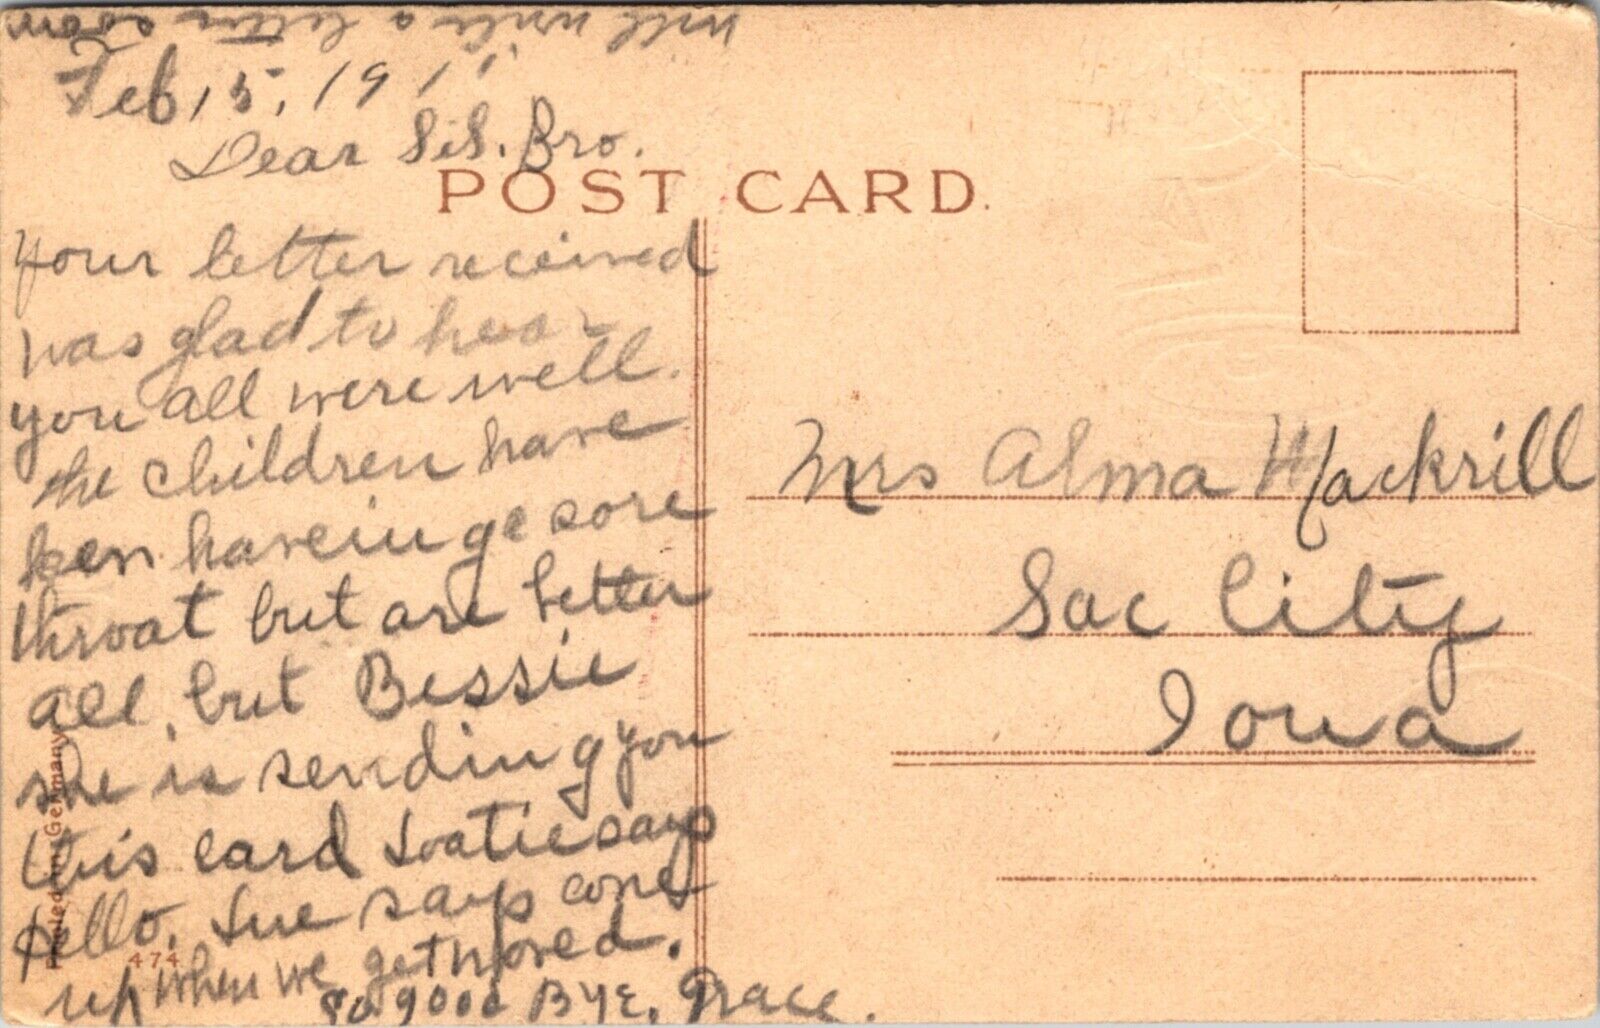 will write a letter soon
Feb 15, 1911
Dear Sis. Bro.
POST CARD.
Your letter received
was glad to hear
you all were well.
the children have
ben haveing sore
throat but are better
all, but Bessie
she is sending you
this card says
Hello. Sue says come
up when we get moved.
so good Bye. Grace.
Mrs Alma Mackrill
Sac City
Iowa
Printed in Germany
474